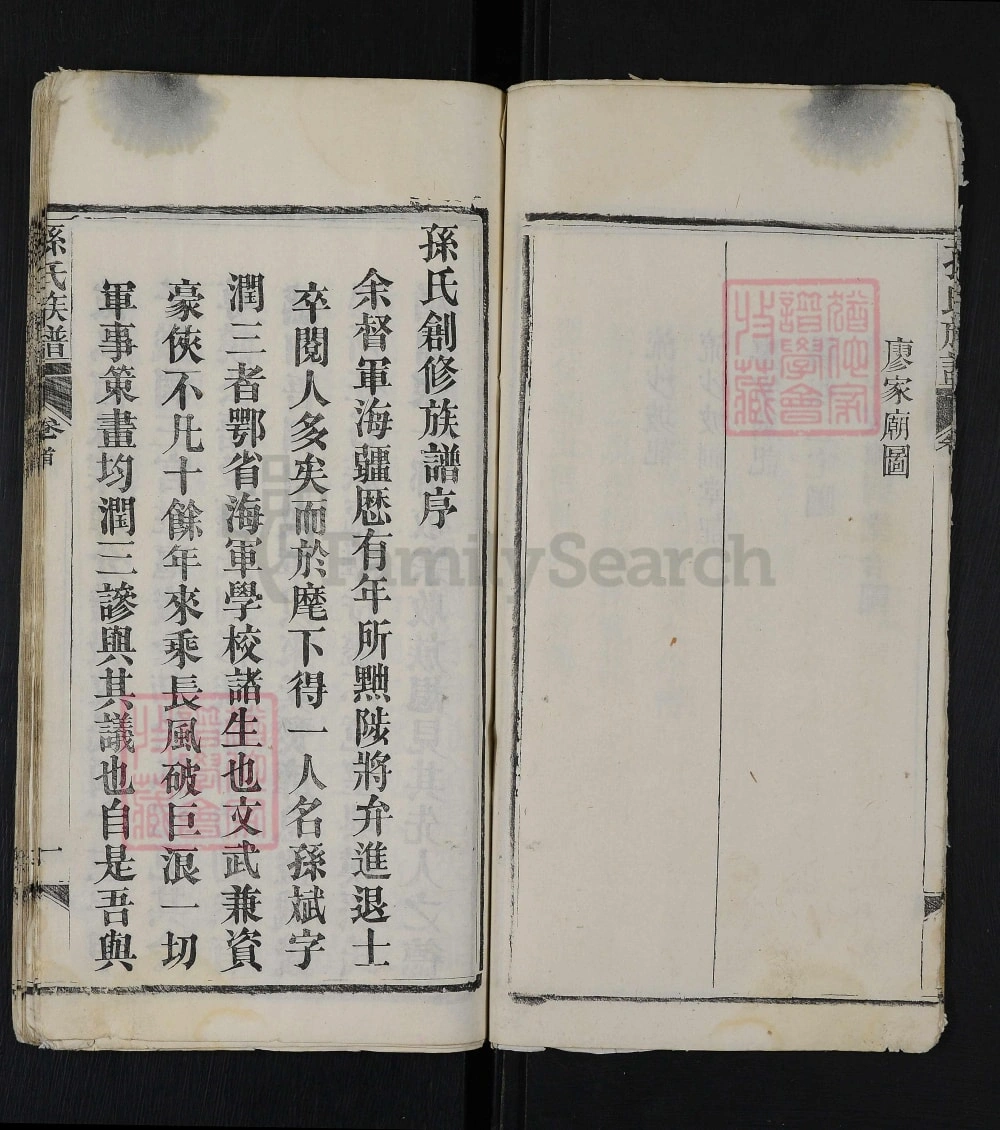 孫氏族譜
卷
廖家廟圖
猶他家
譜學會
收藏
孫氏創修族譜序
余督軍海疆歷有年所黜陟將弁進退士
卒閱人多矣而於麾下得一人名孫斌字
潤三者鄂省海軍學校諸生也文武兼資
豪俠不凡十餘年來乘長風破巨浪一切
軍事策畫均潤三諺與其議也自是吾與
猶他家
譜學會
收藏
孫氏族譜
卷首
一
FamilySearch